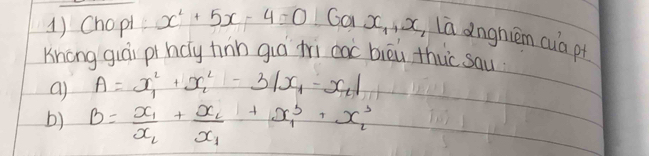 1) Cho pt: x² + 5x - 4 = 0. Gọi x₁, x₂ là 2 nghiệm của pt
Không giải pt hãy tính giá trị các biểu thức sau:
a) A = x₁² + x₂² - 3|x₁ - x₂|
b) B = x₁/x₂ + x₂/x₁ + x₁³ + x₂³